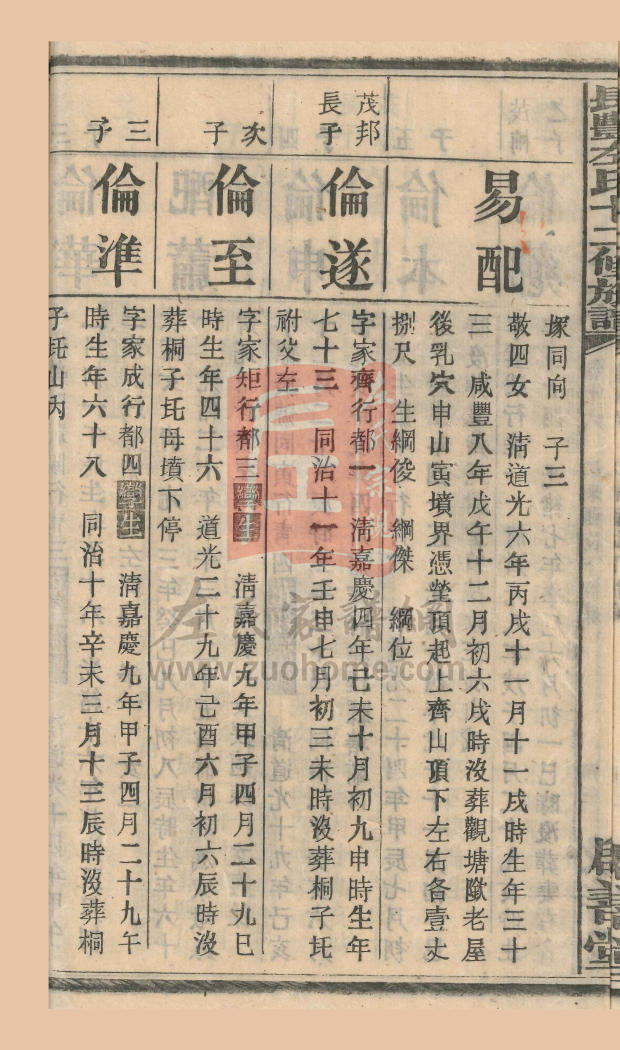 長豐左氏十二修族譜
塚同向　子三
易配
敬四女　清道光六年丙戌十一月十一戌時生年三十
三　咸豐八年戊午十二月初六戌時沒葬觀塘歐老屋
後乳穴申山寅墳界憑塋頂起上齊山頂下左右各壹丈
捌尺　生綱俊　綱傑　綱位
茂邦
長子
倫遂
字家齊行都一　清嘉慶四年己未十月初九申時生年
七十三　同治十一年壬申七月初三未時沒葬桐子圫
祔父左
次子
倫至
字家矩行都三孿生　清嘉慶九年甲子四月二十九巳
時生年四十六　道光二十九年己酉六月初六辰時沒
葬桐子圫母墳下停
三子
倫準
字家成行都四孿生　清嘉慶九年甲子四月二十九午
時生年六十八　同治十年辛未三月十三辰時沒葬桐
子圫山內
左氏家譜網
www.zuohome.com